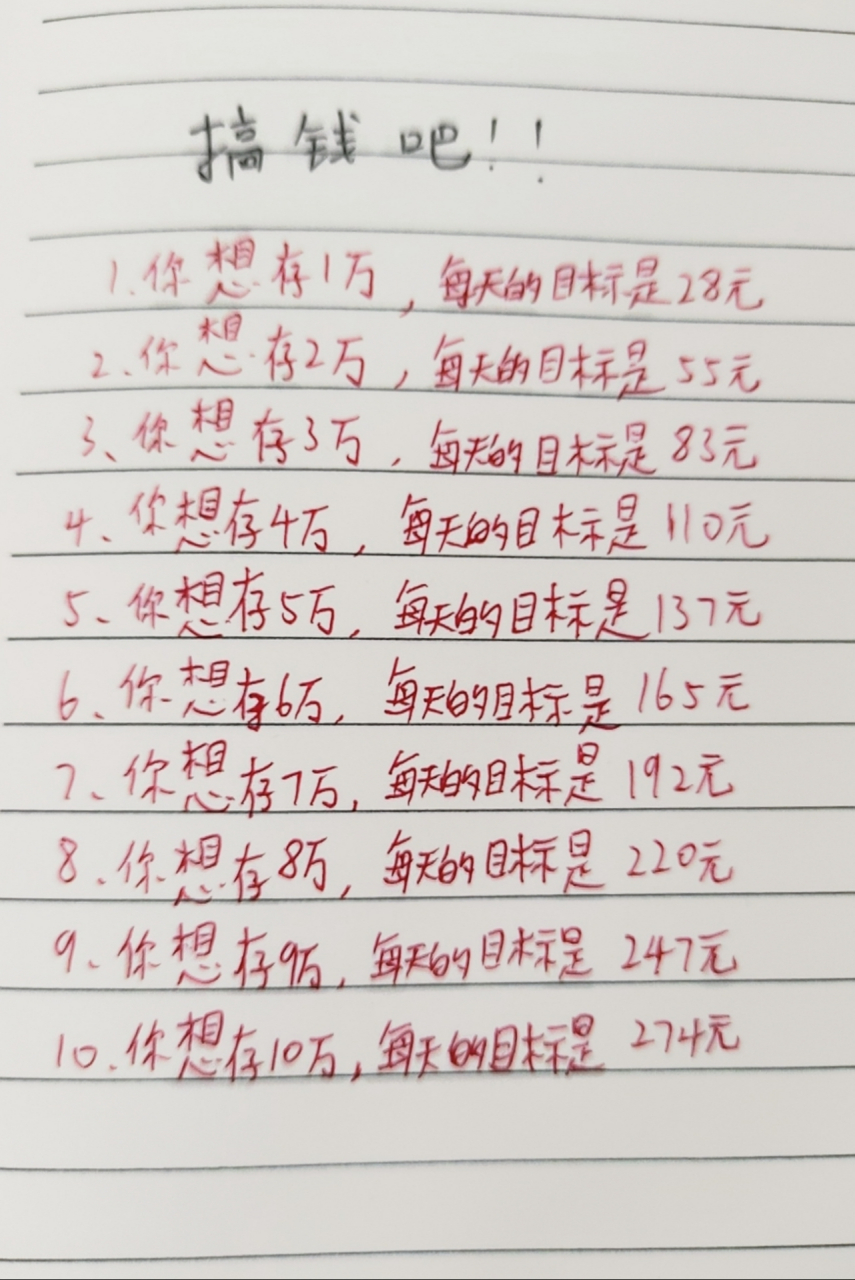 搞钱吧!!
1.你想存1万,每天的目标是28元
2、你想存2万,每天的目标是55元
3、你想存3万,每天的目标是83元
4、你想存4万,每天的目标是110元
5、你想存5万,每天的目标是137元
6、你想存6万,每天的目标是165元
7、你想存7万,每天的目标是192元
8、你想存8万,每天的目标是220元
9、你想存9万,每天的目标是247元
10、你想存10万,每天的目标是274元